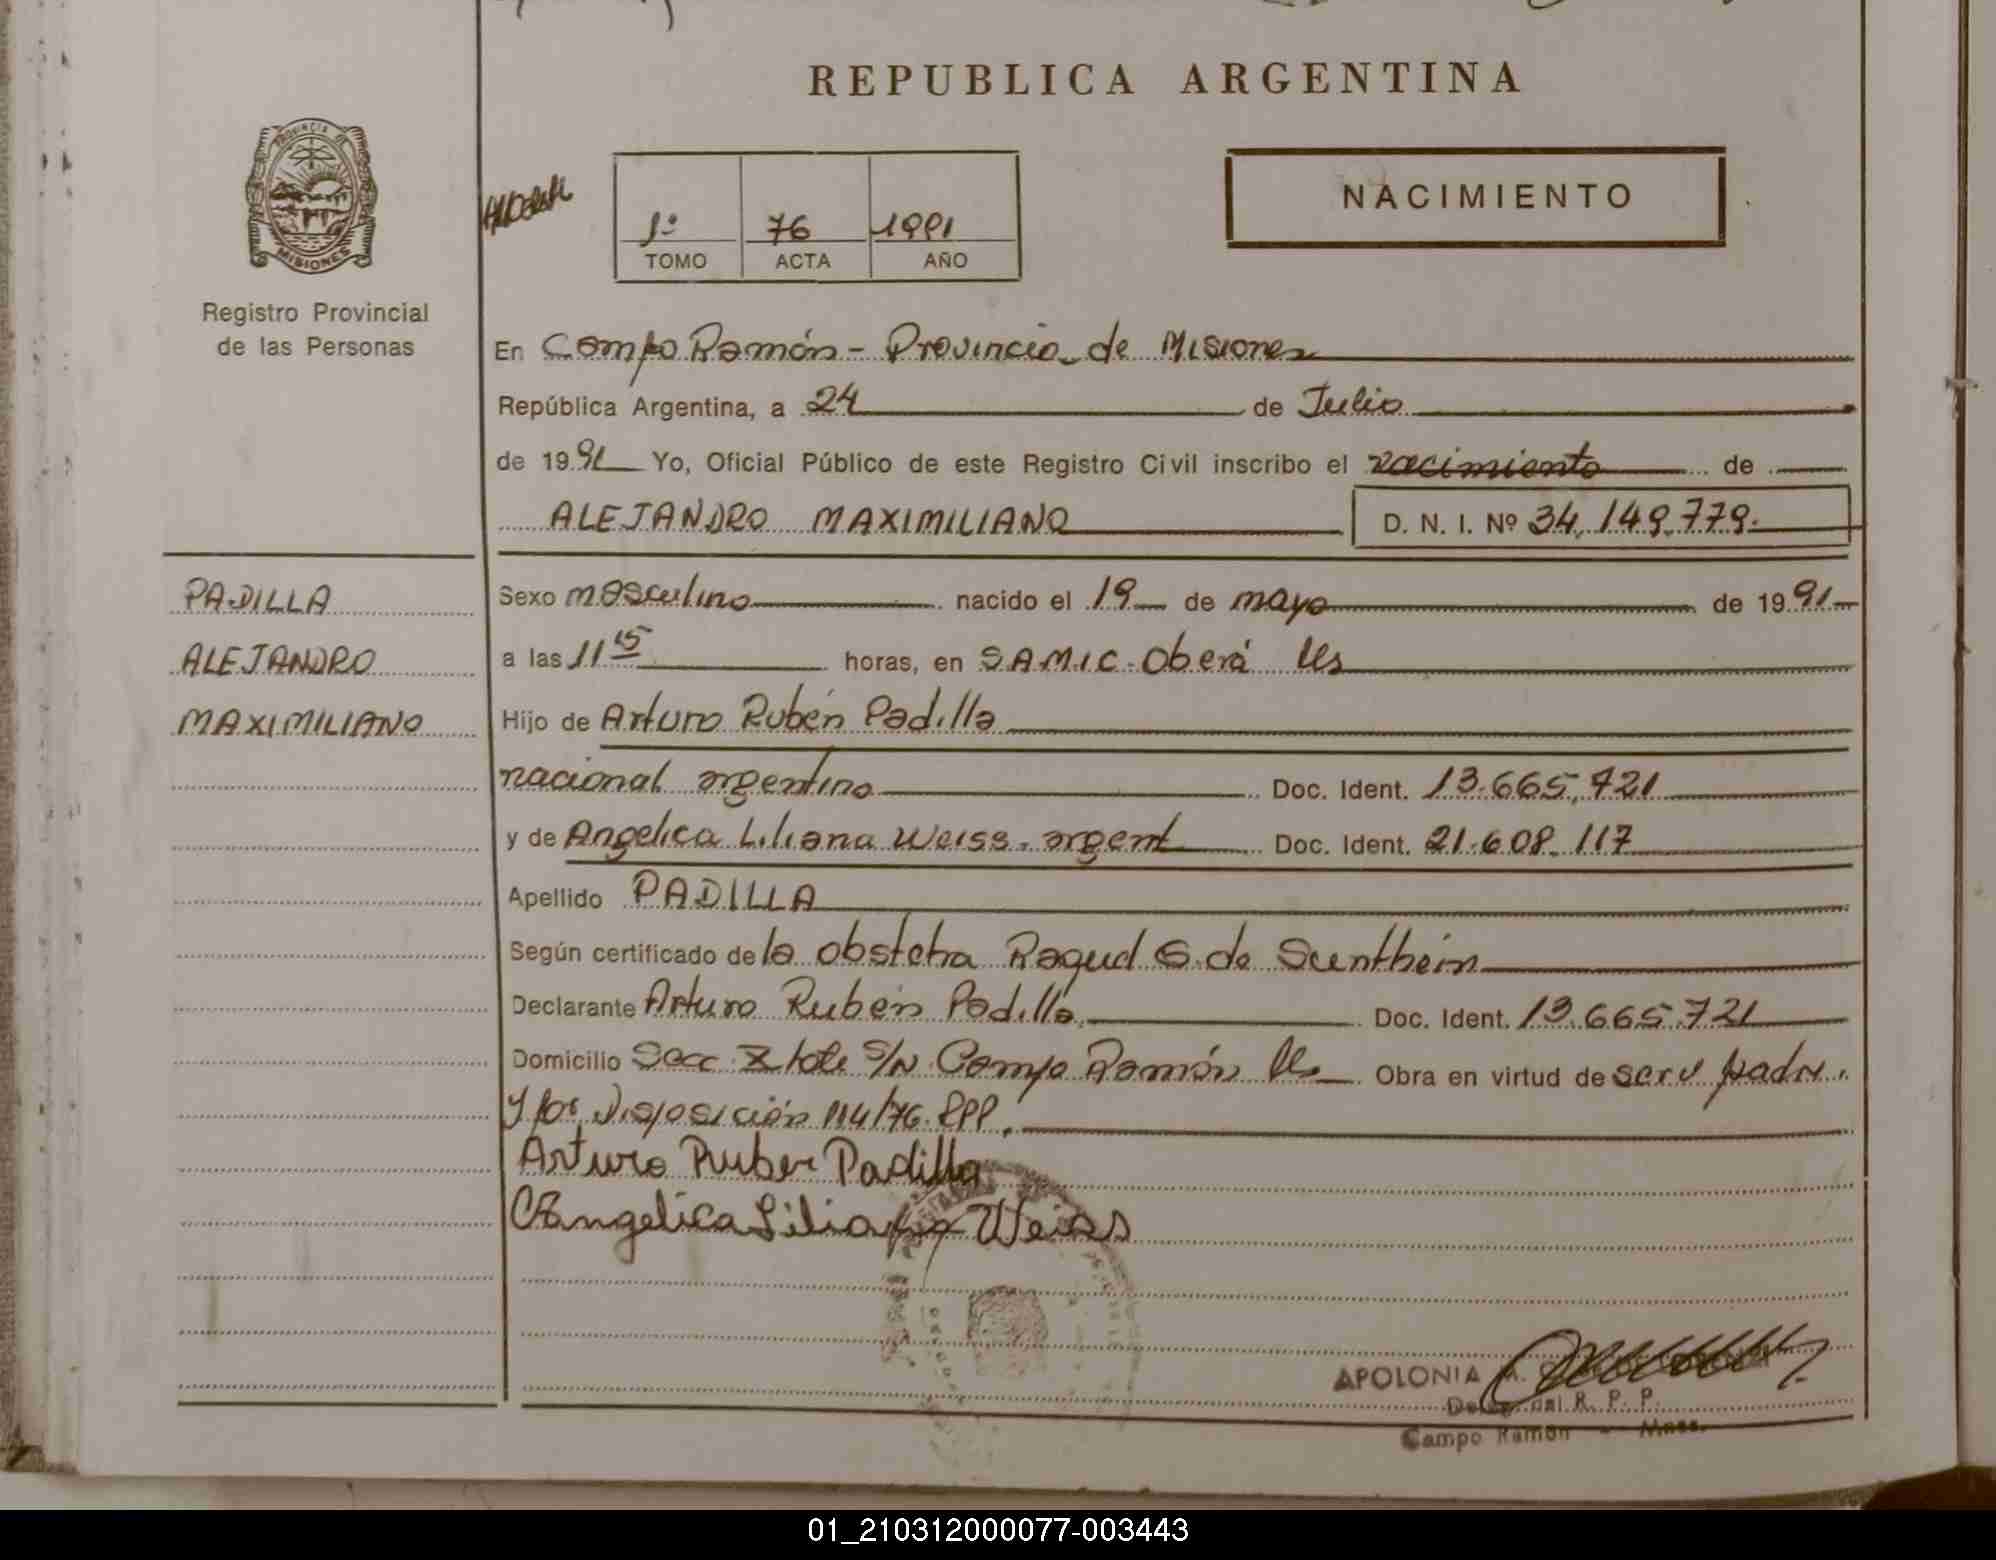 REPUBLICA ARGENTINA
PROVINCIA DE
MISIONES
Registro Provincial
de las Personas
NACIMIENTO
1º 76 1991
TOMO ACTA AÑO
En Campo Ramón - Provincia de Misiones
República Argentina, a 24 de Julio
de 1991 Yo, Oficial Público de este Registro Civil inscribo el nacimiento de
ALEJANDRO MAXIMILIANO D. N. I. Nº 34.149.779.
PADILLA
ALEJANDRO
MAXIMILIANO
Sexo masculino nacido el 19 de mayo de 1991
a las 11 15 horas, en SAMIC. Oberá Ms
Hijo de Arturo Rubén Padilla
nacional. argentino Doc. Ident. 13.665.721
y de Angelica Liliana Weiss. argent Doc. Ident. 21.608.117
Apellido PADILLA
Según certificado de la obstetra Raquel S. de Sunthein
Declarante Arturo Rubén Padilla Doc. Ident. 13.665.721
Domicilio Secc. X lote S/N. Campo Ramón Ms Obra en virtud de ser u padre.
y por Disposición 114/76. RPP.
Arturo Ruben Padilla
Angelica Liliana Weiss
APOLONIA
Deleg. del R. P. P.
Campo Ramón - Mnes.
01_210312000077-003443